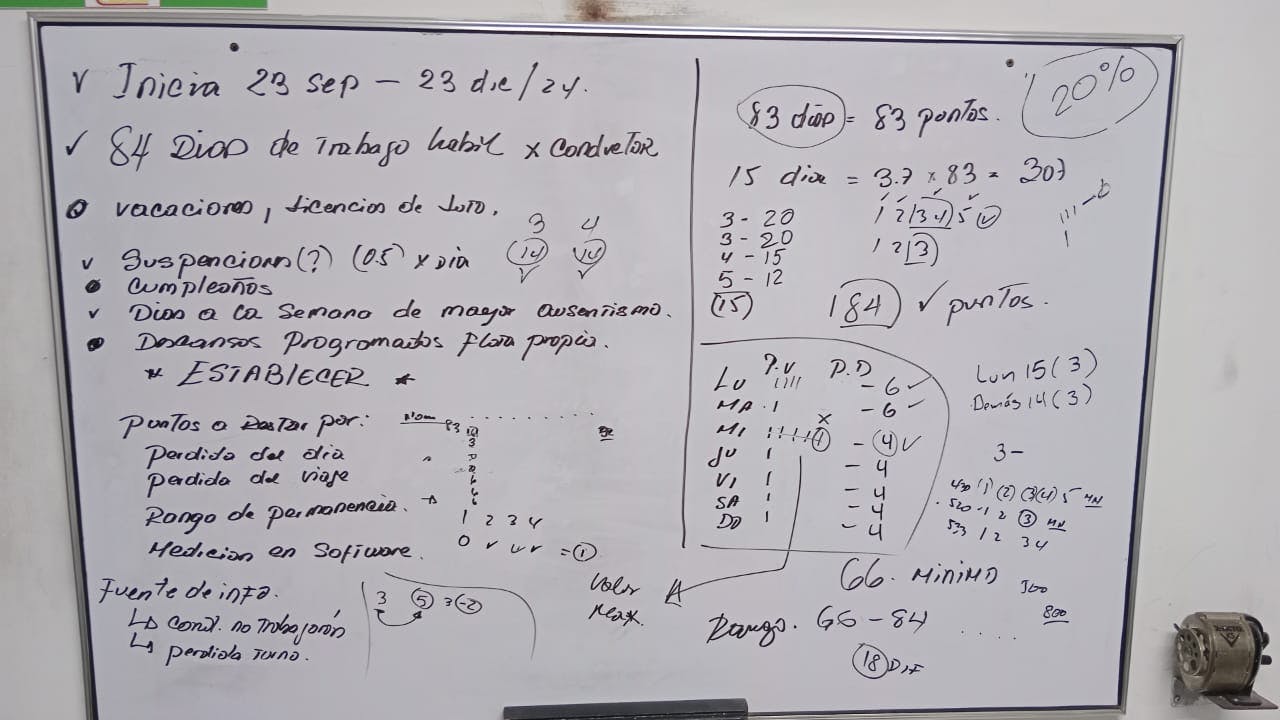 v Inicia 23 sep – 23 dic/24.
✓ 84 Dias de Trabajo habil x conductor
vacaciones, Licencias de Luto.
3 4
v Suspenciones (?) (0.5) x Dia (14) (14)
Cumpleaños
v Dias a la Semana de mayor ausentismo.
Descansos Programados Flota propia.
* ESTABLECER *
Puntos a Restar por:
Nom
83
Perdida del dia
Perdida del viaje
Rango de permanencia.
1 2 3 4
Medicion en Software.
0 v v v = 1
Fuente de info.
↳ Cond. no Trabajaron
↳ perdida Turno.
3 (5) 3 (-2)
Valor
Max.
20%
83 dias = 83 puntos.
15 dias = 3.7 x 83 = 307
3 - 20
3 - 20
4 - 15
5 - 12
(15)
1 2 (3 4) 5
1 2 3
184 ✓ puntos.
P.V P.D
LU - 6 ✓
MA - 6 ✓
MI - (4) ✓
JU - 4
VI - 4
SA - 4
DO - 4
Lun 15 (3)
Demás 14 (3)
3 -
430 (1) (2) (3)(4) 5 MN
520 - 1 2 (3) MN
533 1 2 3 4
66. MINIMO
300
800
Rango. 66 - 84 ....
(18) DIF